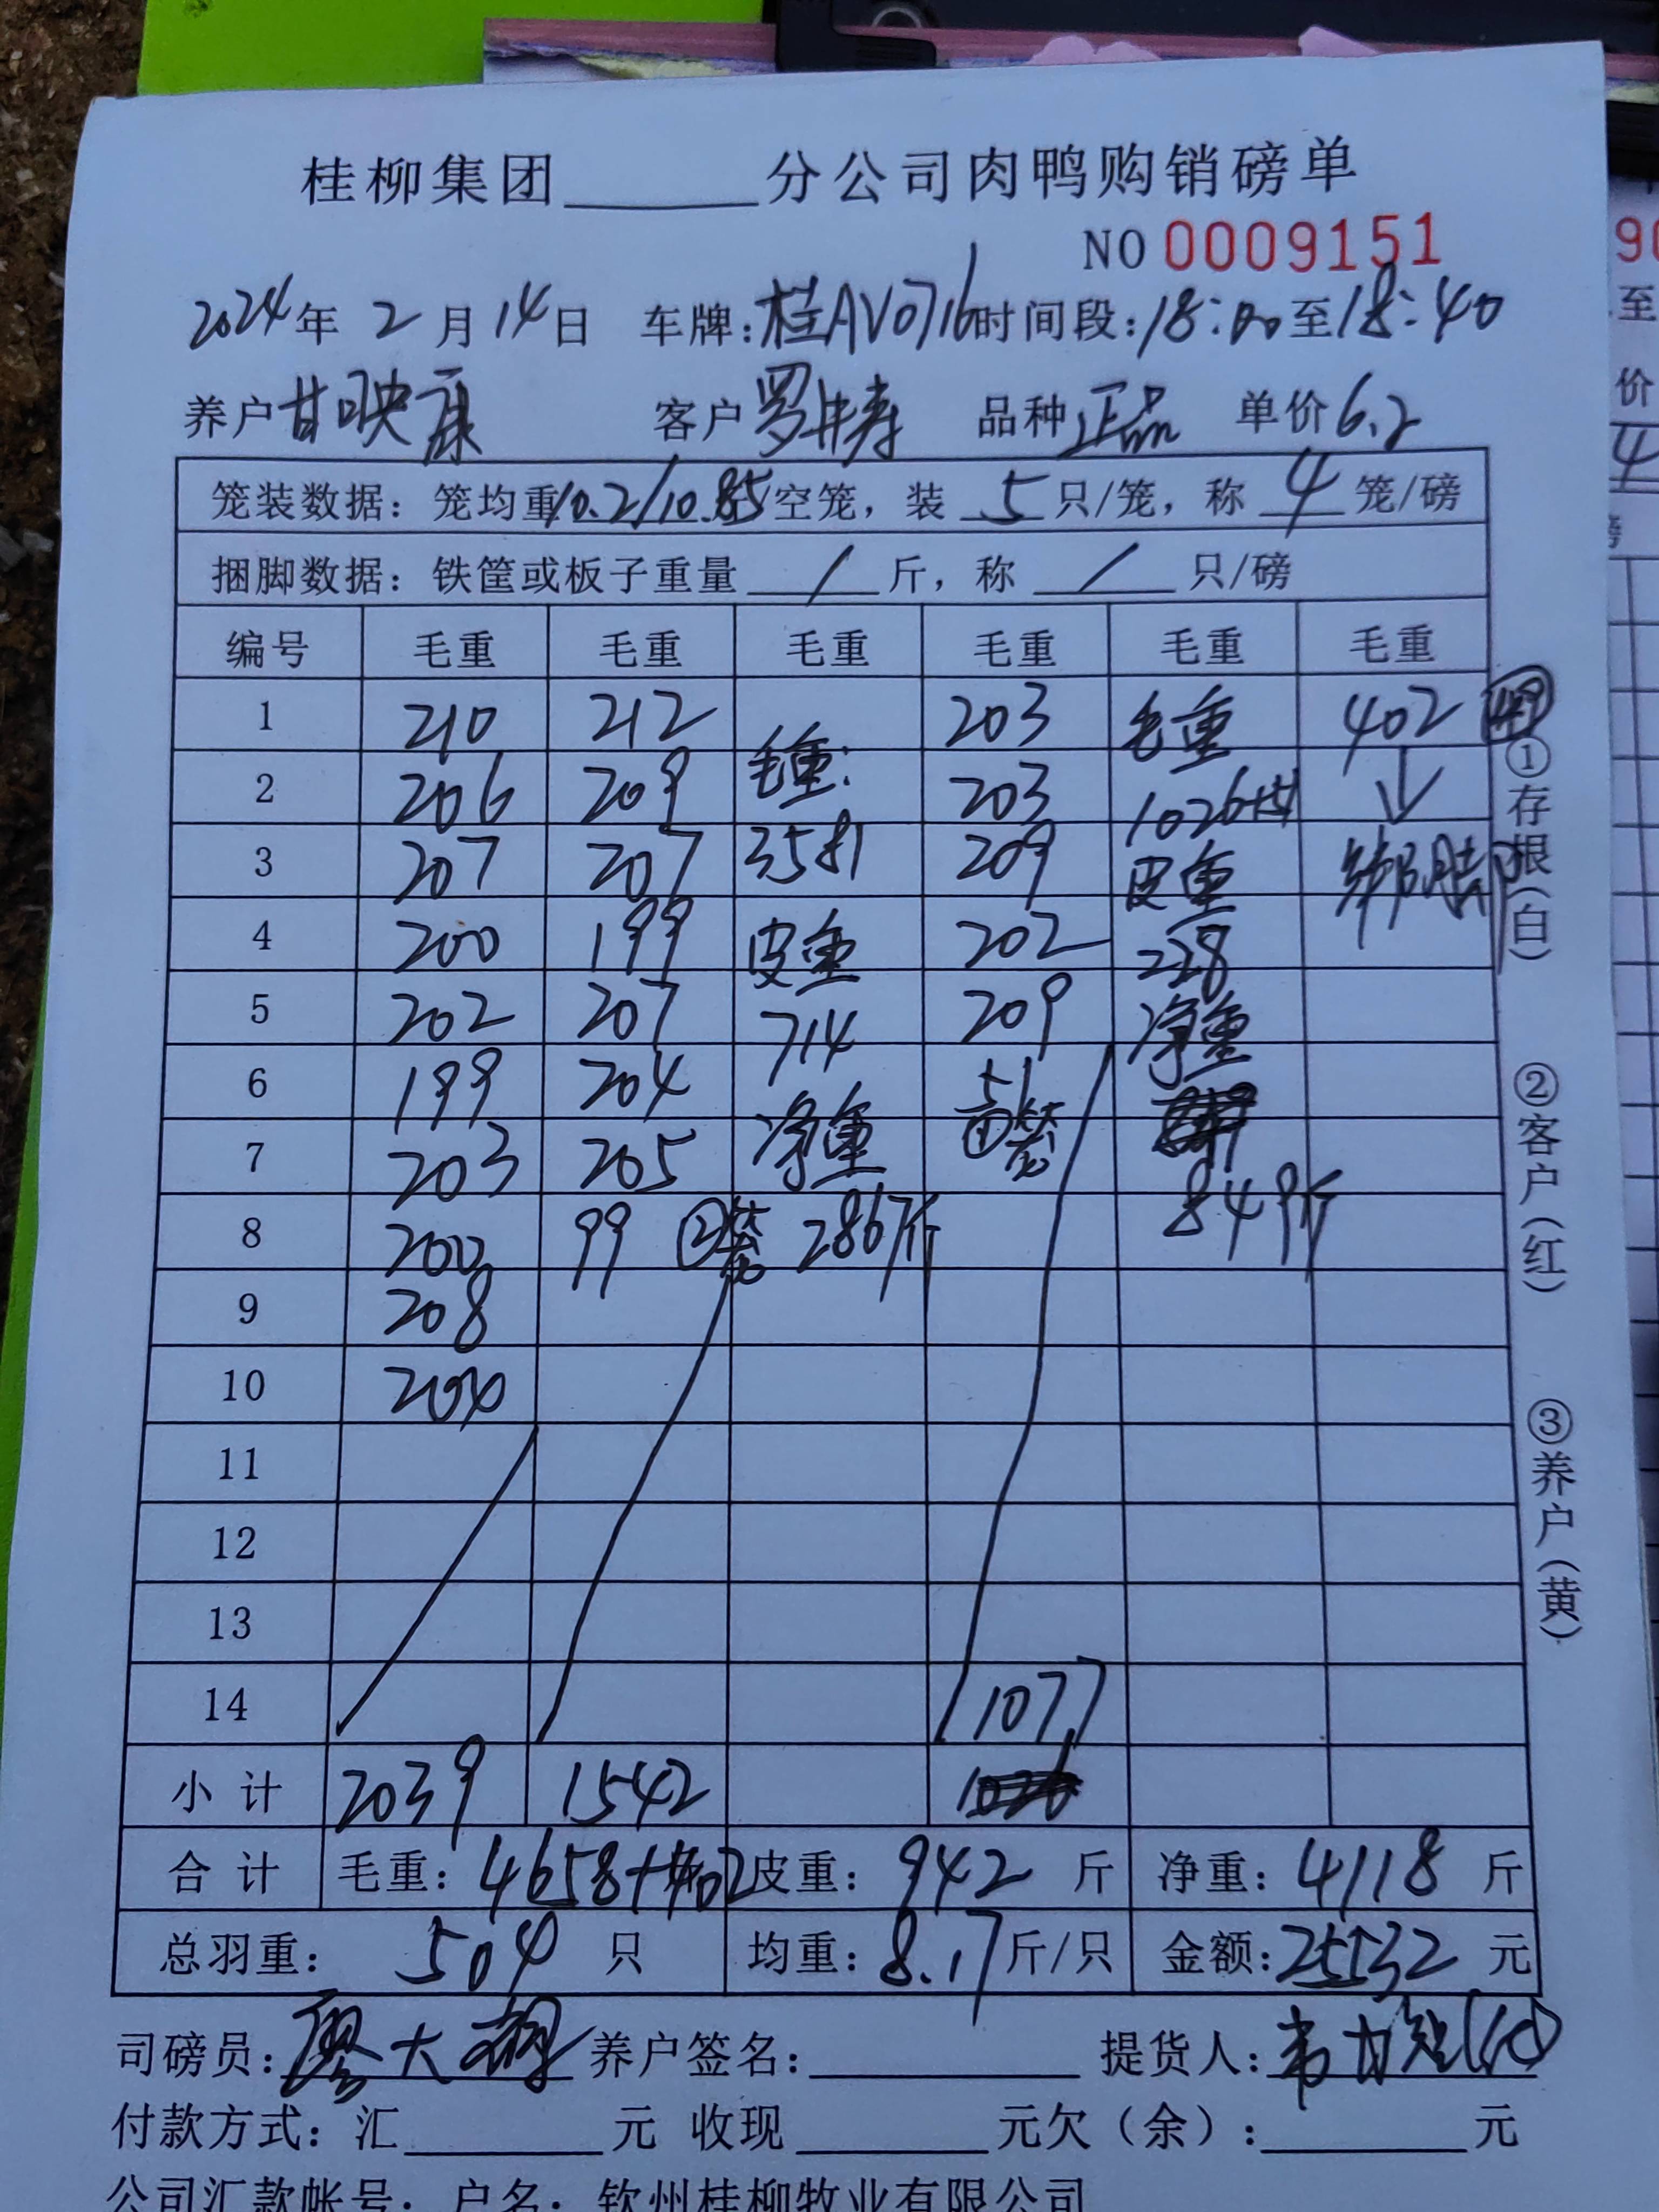 桂柳集团______分公司肉鸭购销磅单
NO 0009151
2024年 2月14日 车牌:桂AV0716 时间段:18:00至18:40
养户 甘映康 客户 罗 品种 正品 单价 6.2
笼装数据：笼均重10.2/10.85空笼，装 5 只/笼，称 4 笼/磅
捆脚数据：铁筐或板子重量 / 斤，称 / 只/磅
编号 毛重 毛重 毛重 毛重 毛重 毛重
1 210 212 203 毛重 402
2 206 209 毛重: 203 1026+51
3 207 207 3581 209 皮重 绑脚
4 200 199 皮重 202 228
5 202 207 714 209 净重
6 199 204 51
7 203 205 净重 ①装
8 200 99 ②装 2867斤 849斤
9 208
10 204
11
12
13
14 1077
小计 2039 1542 1026
合计 毛重: 4658+402 皮重: 942 斤 净重: 4118 斤
总羽重: 504 只 均重: 8.17斤/只 金额: 25532 元
司磅员: 廖大 养户签名:______ 提货人:
付款方式: 汇______元 收现______元欠（余）:______元
公司汇款帐号: 户名: 钦州桂柳牧业有限公司
①存根(白)
②客户(红)
③养户(黄)
90
至
价
4